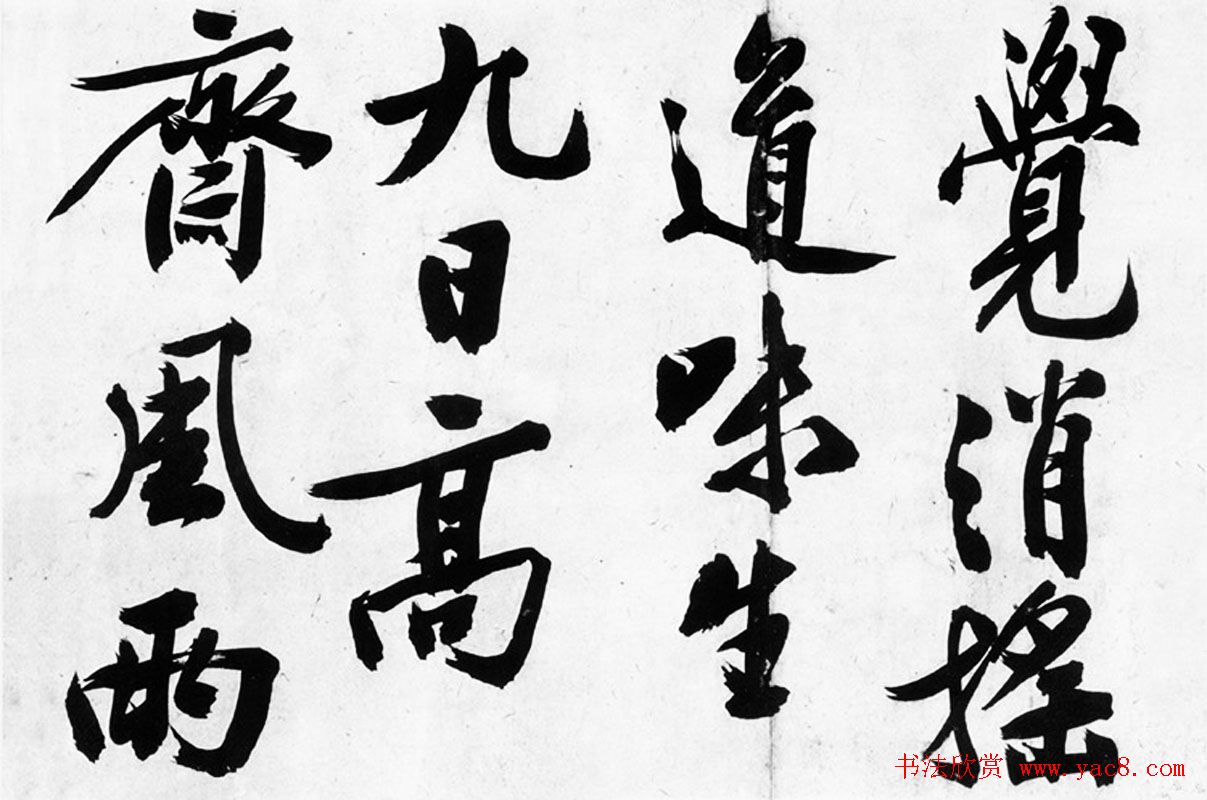 覺消摇
道味生
九日高
齋風雨
书法欣赏 www.yac8.com